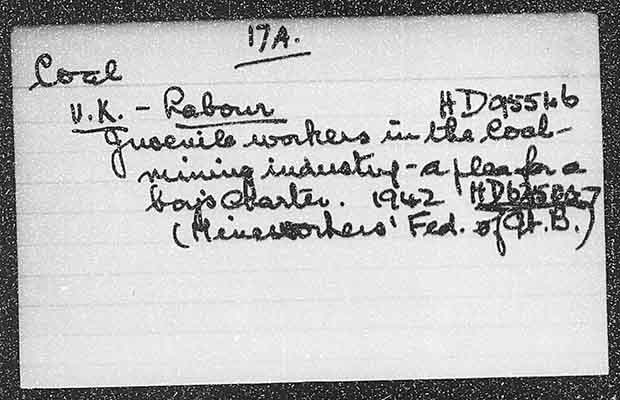 17A.
Coal
U.K. - Labour HD9551.6
Juvenile workers in the Coal-
mining industry - a plea for a
boys Charter. 1942
(Mineworkers' Fed. of Gt. B.)